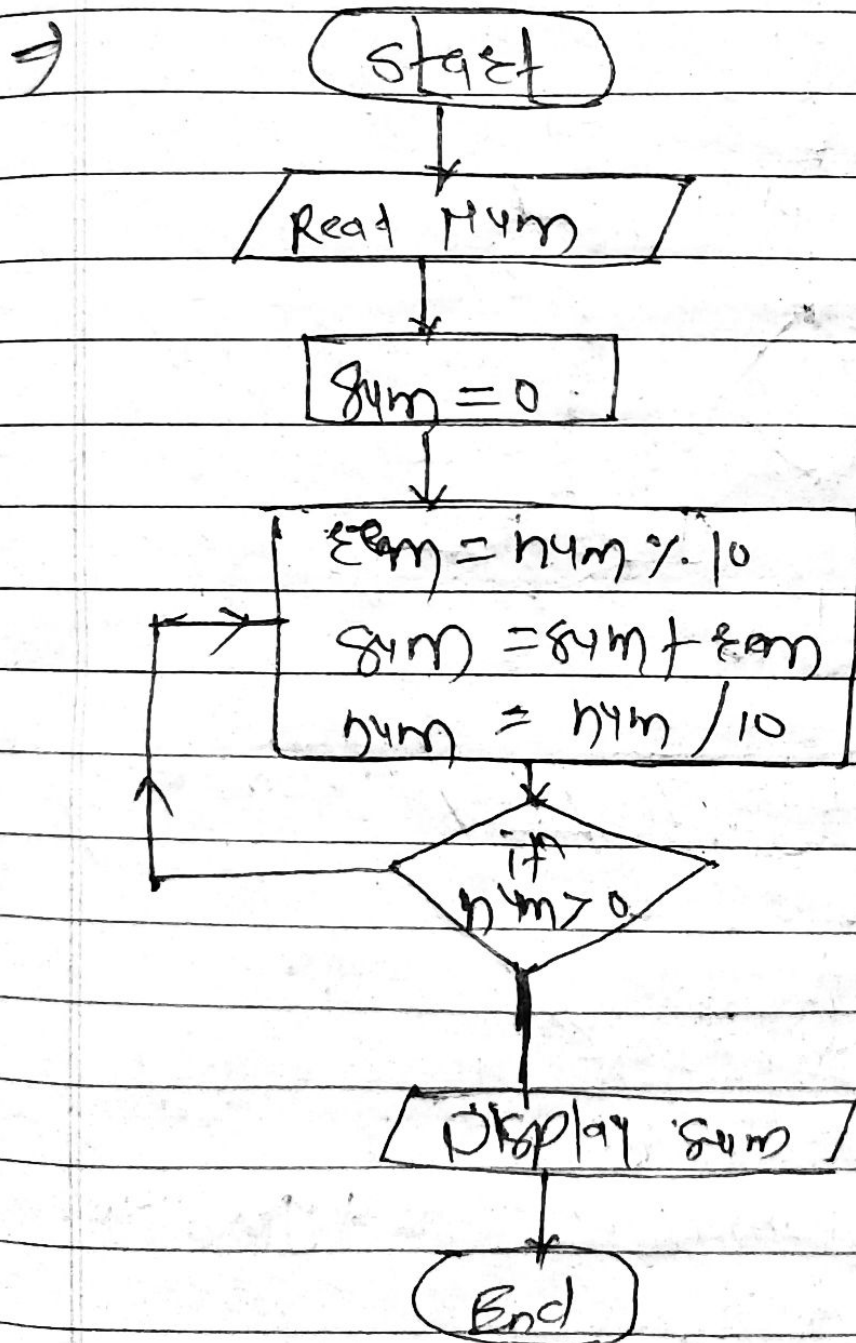 ⇒ Start
Read Num
Sum = 0
rem = num % 10
sum = sum + rem
num = num / 10
if
num > 0
Display sum
End